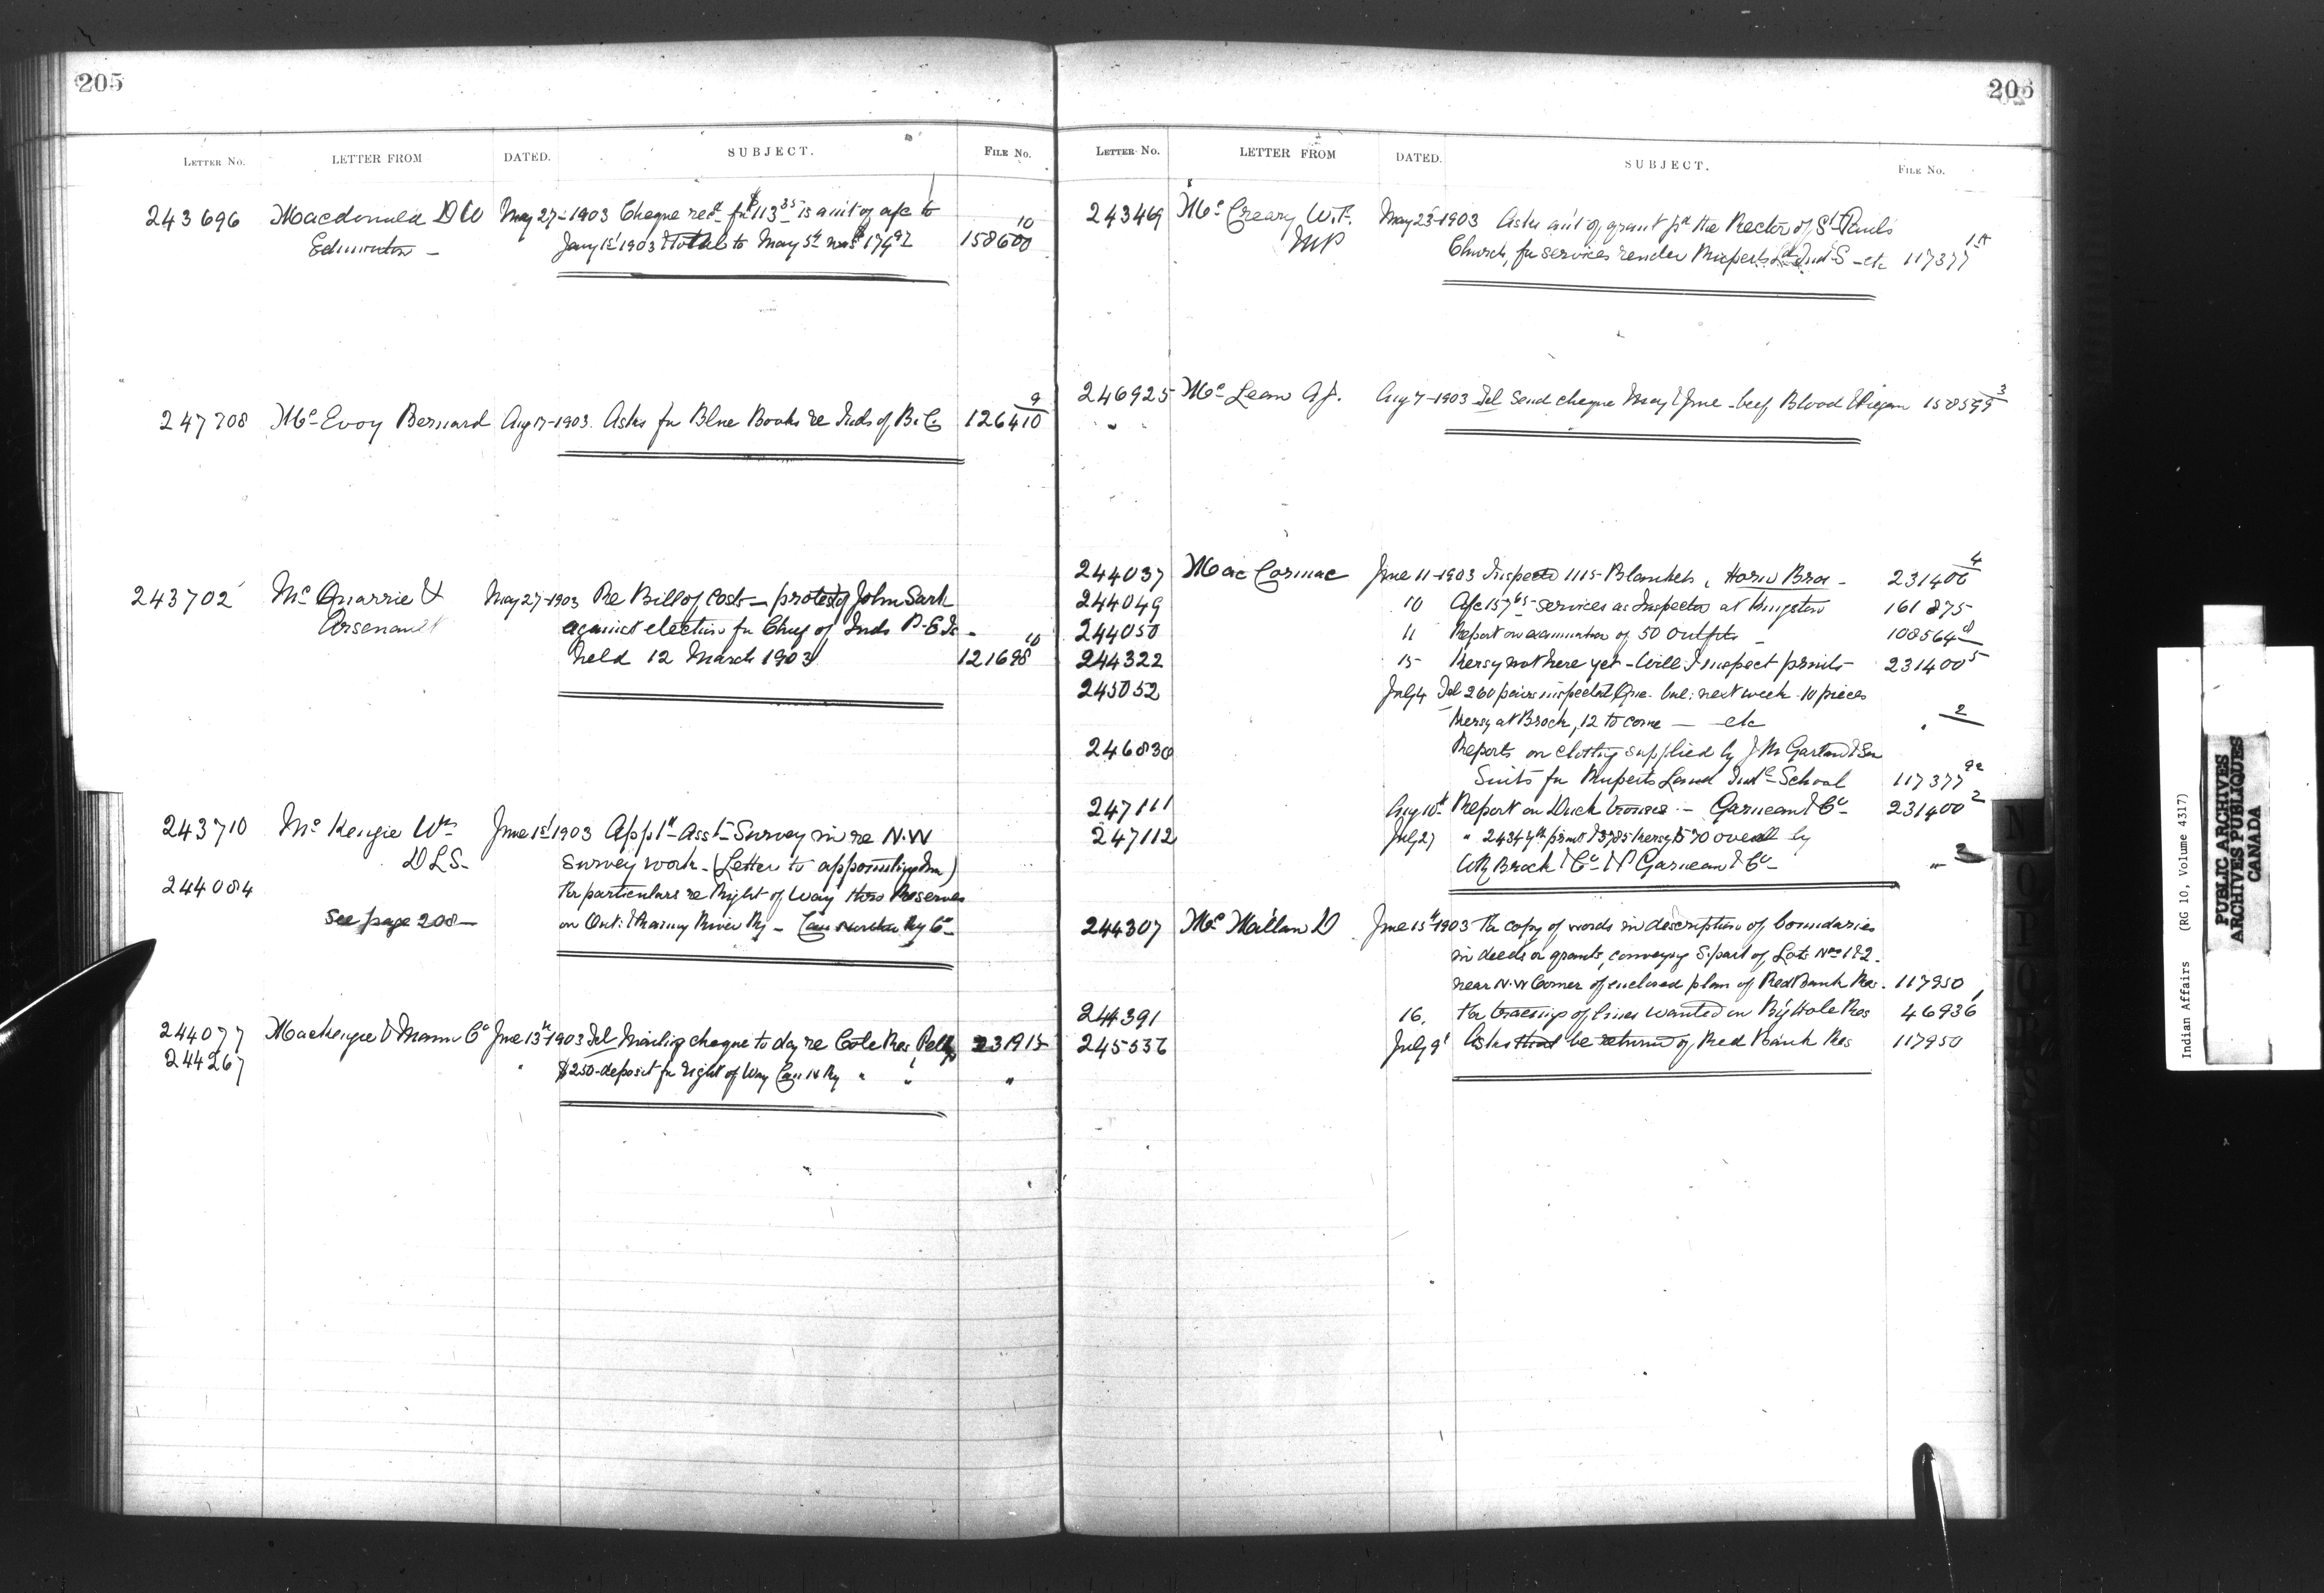 205
LETTER No. LETTER FROM DATED. SUBJECT. FILE No.
243696 Macdonald D W May 27-1903 Cheque recd for $113.35 is amt of a/c to
Edmonton - Jany 1st 1903 total to May 5th was $174.92 158600 10
247708 McEvoy Bernard Aug 17-1903. Asks for Blue Books re Inds of B.C. 126410 9
243702 McQuarrie & May 27-1903 Re Bill of Costs - protest of John Sark
Arsenault against election for Chief of Inds P.E.Is -
held 12 March 1903 121698 10
243710 McKenzie Wm June 1st 1903 App't Asst Survey in re N.W
DLS- Survey work - (Letter to appointing him)
244084 For particulars re Right of Way thro Reserves
See page 208- on Ont: & Rainy River Ry - Can Northern Ry Co -
244077 MacKenzie & Mann Co June 13th 1903 Tel Mailing cheque to day re Cote Res Pelly 231915
244267 " $250-deposit for right of Way Can N Ry " " "
206
LETTER No. LETTER FROM DATED. SUBJECT. FILE No.
243469 McCreary W.F. May 23-1903 Asks am't of grant pd the Rector of St Paul's
MP Church, for services render Ruperts Ld Ind S - etc 117377
246925 McLean A J. Aug 7-1903 Tel Send cheque May & June - beef Blood & Piegan 158599 3
244037 MacCormac June 11-1903 Inspected 1115 Blankets, Horn Bros - 231400 4
244049 10 A/c 157.65 - services as Inspector at Kingston 161875
244050 11 Report on examination of 50 outfits - 108564
244322 15 Kersey not here yet - Will I inspect prints 231400 5
245052 July 4 Tel 260 pairs inspected Que - bal: next week - 10 pieces
Kersey at Brock, 12 to come - etc " 2
246830 Reports on clothing supplied by J M Garland & Son
Suits for Ruperts Land Indl School 117377
247111 Aug 10th Report on Duck trousers - Garneau & Co 231400 2
247112 July 27 " 2434 yds prints & 3785 Kersey & 570 overall by
W R Brock & Co & P Garneau & Co - " 3
244307 McMillan D June 15th 1903 For copy of words in description of boundaries
in deeds or grants, conveying S. part of Lots Nos 1 & 2.
near N.W Corner of enclosed plan of Red Bank Res. 117950
244391 16. For tracings of lines wanted in Big Hole Res 46936
245536 July 9 Asks that be return of Red Bank Res 117950
N
O
P
Q
R
S
Indian Affairs (RG 10, Volume 4317)
PUBLIC ARCHIVES
ARCHIVES PUBLIQUES
CANADA